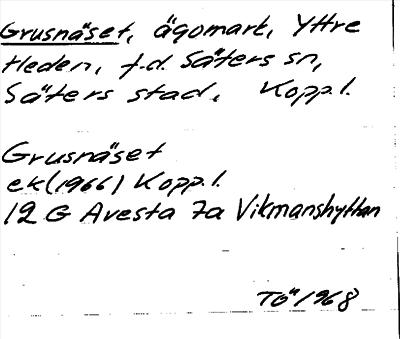 Grusnäset, ägomark, Yttre
Heden, f.d. Säters sn,
Säters stad, Kopp.l.
Grusnäset
ek (1966) Kopp.l.
12 G Avesta 7a Vikmanshyttan
TÖ 1968